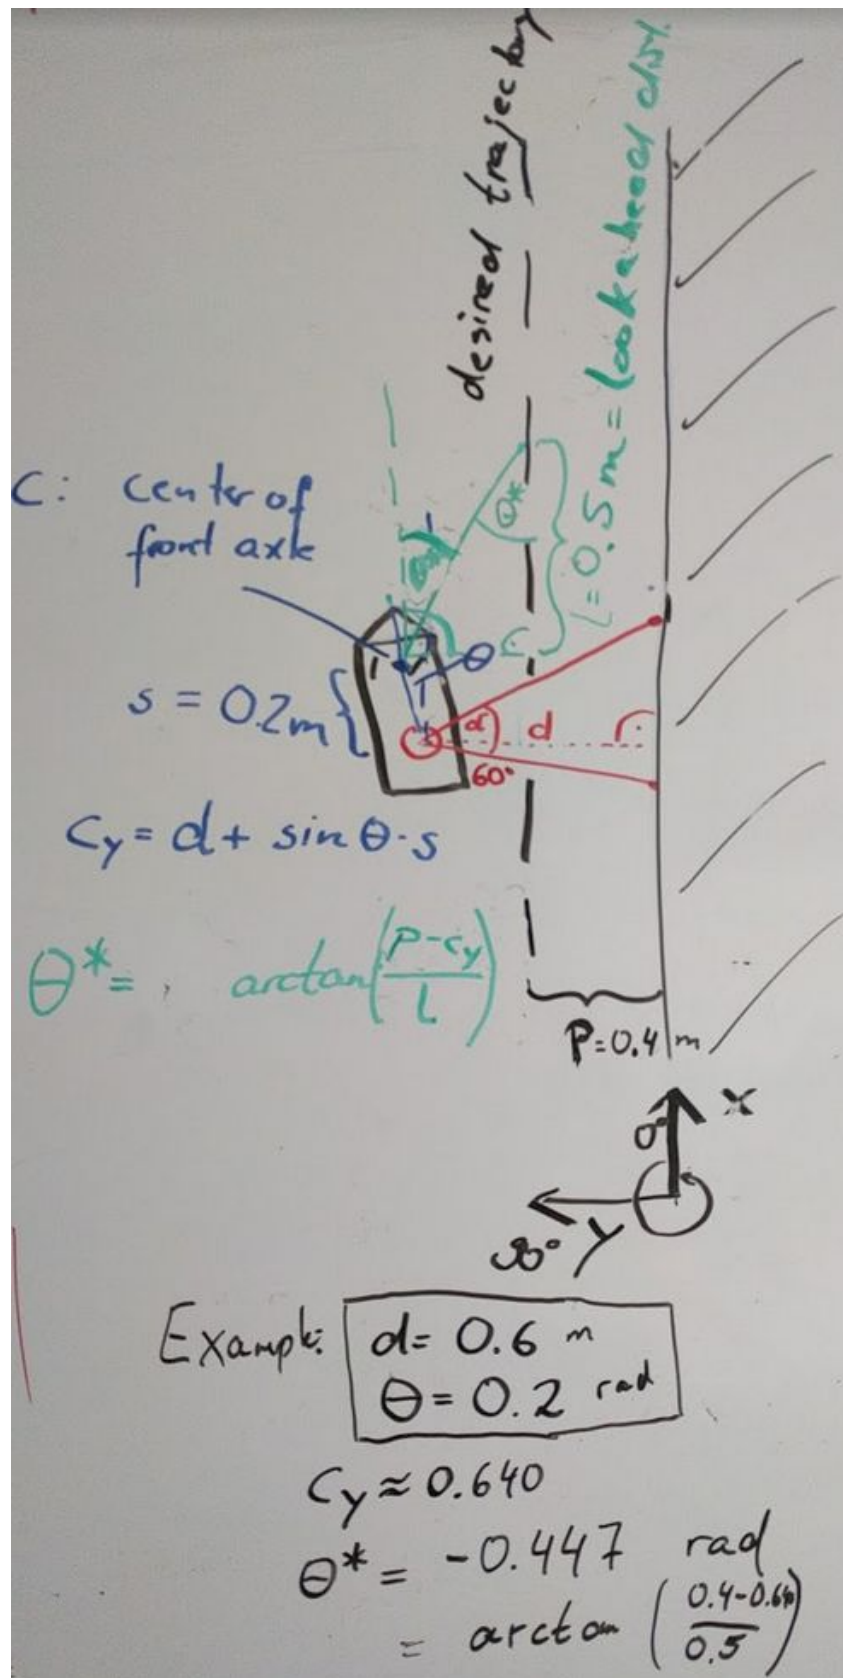 desired trajectory
L=0.5m = lookahead dist.
C: center of
front axle
θ*
θ
s = 0.2m
α
d
60°
Cy = d + sin θ · s
θ* = arctan(P-cy/L)
P=0.4 m
x
0°
90° y
Example:
d= 0.6 m
θ= 0.2 rad
Cy ≈ 0.640
θ* = -0.447 rad
= arctan (0.4-0.640/0.5)